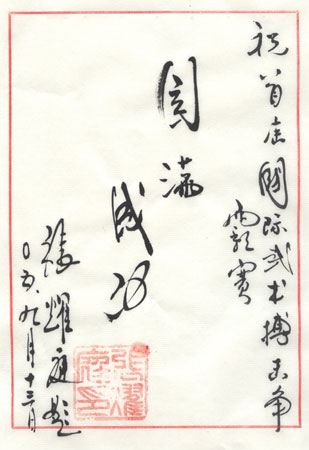 祝首届国际武术搏击争
霸赛
圆满
成功
张耀庭题
〇五.九月十三日
张耀庭印